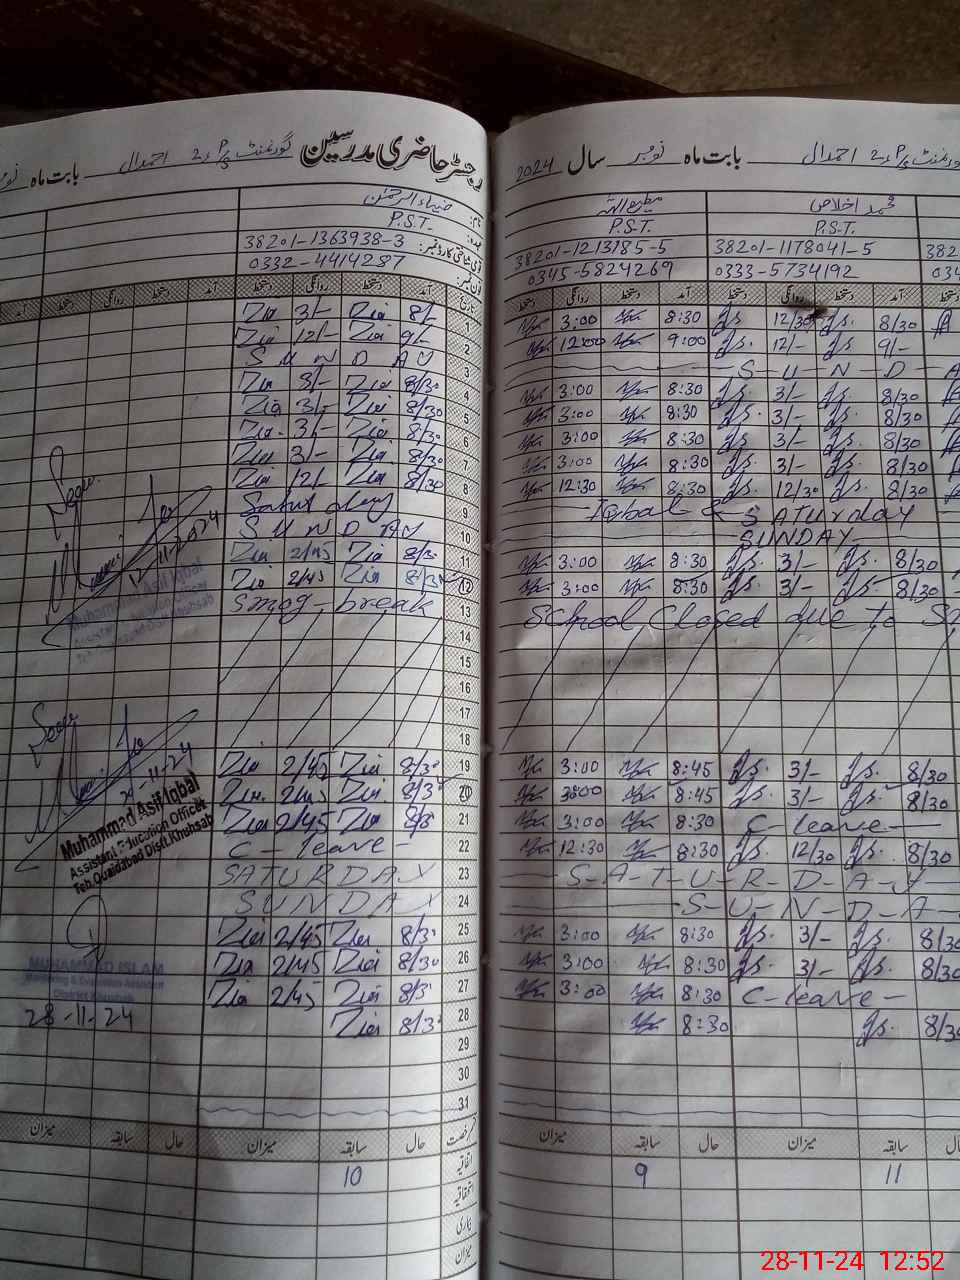 رجسٹر حاضری مدرسین گورنمنٹ P/S احمدال بابت ماہ
بابت ماہ نومبر سال 2024
نام: ضیاء الرحمٰن
عہدہ: P.S.T.
قومی شناختی کارڈ نمبر: 38201-1363938-3
فون نمبر: 0332-4414287
مطیع اللہ محمد اخلاص
P.S.T. P.S.T.
38201-1213185-5 38201-1178041-5
0345-5824269 0333-5734192
تاریخ آمد دستخط روانگی دستخط آمد دستخط روانگی دستخط
دستخط روانگی دستخط آمد دستخط روانگی دستخط آمد دستخط
Zia 3/- Zia 8/- 1
Zia 12/- Zia 9/- 2
SUNDAY 3
Zia 3/- Zia 8/30 4
Zia 3/- Zia 8/30 5
Zia 3/- Zia 8/30 6
Zia 3/- Zia 8/30 7
Zia 12/- Zia 8/30 8
Saturday 9
SUNDAY 10
Zia 2/45 Zia 8/30 11
Zia 2/45 Zia 8/30 12
Smog-break 13
14
15
16
17
18
Zia 2/45 Zia 8/30 19
Zia 2/45 Zia 8/30 20
Zia 2/45 Zia 8/30 21
C-leave- 22
SATURDAY 23
SUNDAY 24
Zia 2/45 Zia 8/30 25
Zia 2/45 Zia 8/30 26
Zia 2/45 Zia 8/30 27
Zia 8/30 28
29
30
31
3:00 8:30 12/30 8/30
12:00 9:00 12/- 9/-
S-U-N-D-A
3:00 8:30 3/- 8/30
3:00 8:30 3/- 8/30
3:00 8:30 3/- 8/30
3:00 8:30 3/- 8/30
12:30 8:30 12/30 8/30
Iqbal & SATURDAY
SUNDAY
3:00 8:30 3/- 8/30
3:00 8:30 3/- 8/30
School Closed due to
3:00 8:45 3/- 8/30
3:00 8:45 3/- 8/30
3:00 8:30 C-leave-
12:30 8:30 12/30 8/30
S-A-T-U-R-D-A-Y
S-U-N-D-A-
3:00 8:30 3/- 8/30
3:00 8:30 3/- 8/30
3:00 8:30 C-leave-
8:30 8/30
Seen
11-2024
Muhammad Asif Iqbal
Assistant Education Officer
Teh. Quaidabad Distt. Khushab
Seen
11-24
Muhammad Asif Iqbal
Assistant Education Officer
Teh. Quaidabad Distt. Khushab
MUHAMMAD ISLAM
Monitoring & Evaluation Assistant
District Khushab
28-11-24
قسم رخصت حال سابقہ میزان حال سابقہ میزان
حال میزان سابقہ حال سابقہ میزان
اتفاقیہ 10
9 11
استحقاقیہ
بیماری
میزان
28-11-24 12:52